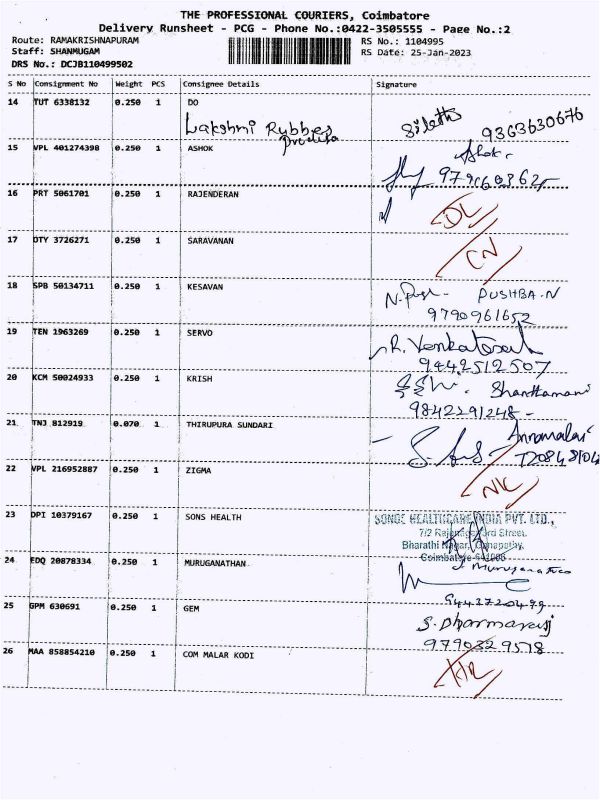 THE PROFESSIONAL COURIERS, Coimbatore
Delivery Runsheet - PCG - Phone No.:0422-3505555 - Page No.:2
Route: RAMAKRISHNAPURAM
Staff: SHANMUGAM
DRS No.: DCJB110499502
RS No.: 1104995
RS Date: 25-Jan-2023
S No Consignment No Weight PCS Consignee Details Signature
14 TUT 6338132 0.250 1 DO
Lakshmi Rubbers
9363630676
15 VPL 401274398 0.250 1 ASHOK
Ashok.
16 PRT 5061701 0.250 1 RAJENDERAN
DL
17 DTY 3726271 0.250 1 SARAVANAN
CN
18 SPB 50134711 0.250 1 KESAVAN
PUSHBA.N
9790961652
19 TEN 1963269 0.250 1 SERVO
R. Venkatesh
9442512507
20 KCM 50024933 0.250 1 KRISH
Shanthamani
9842291248
21 TNJ 812919 0.070 1 THIRUPURA SUNDARI
Annamalai
22 VPL 216952887 0.250 1 ZIGMA
NK
23 DPI 10379167 0.250 1 SONS HEALTH
HEALTHCARE INDIA PVT. LTD.,
Bharathi Nagar, Ganapathy,
24 EDQ 20878334 0.250 1 MURUGANATHAN
25 GPM 630691 0.250 1 GEM
S. Dharmaraj
9790329578
26 MAA 858854210 0.250 1 COM MALAR KODI